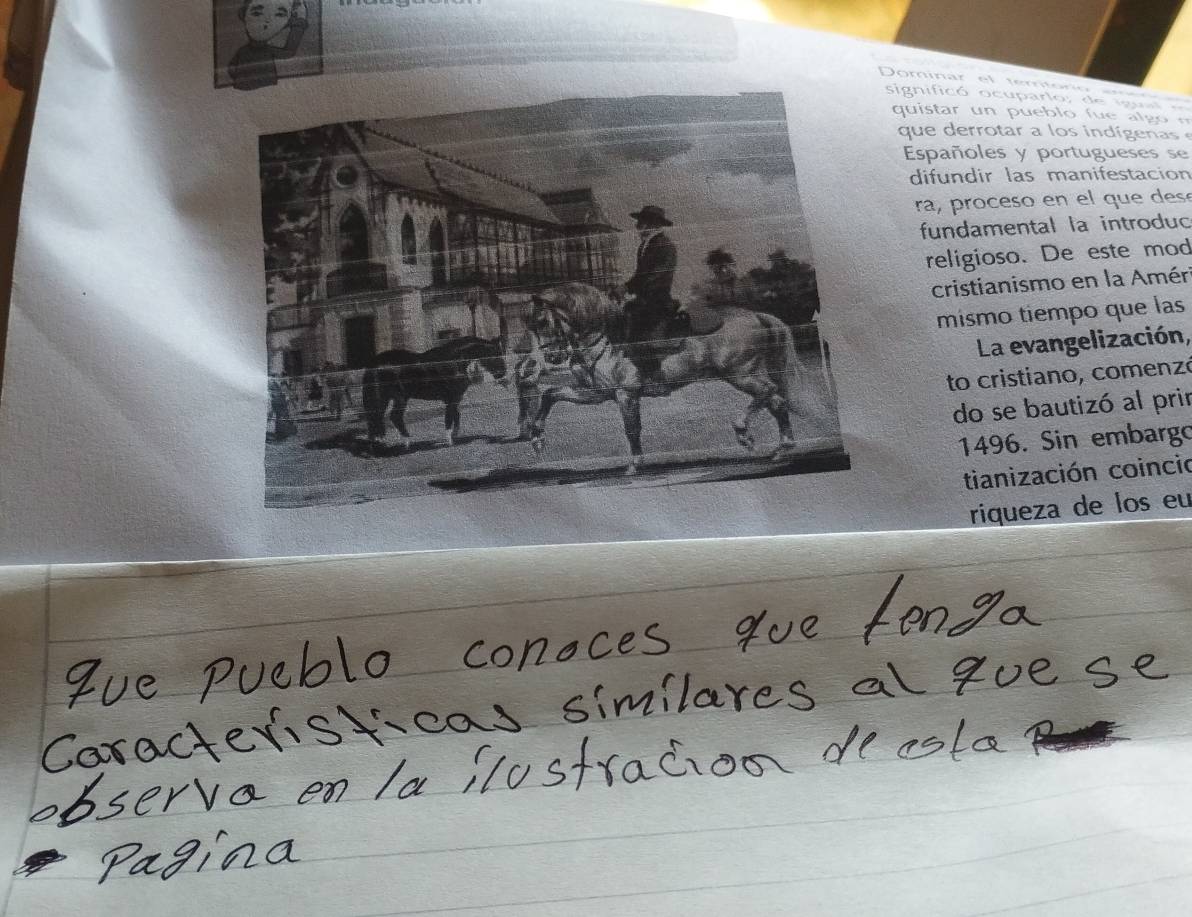 Dominar el territorio
significó ocuparlo; de igual
quistar un pueblo fue algo m
que derrotar a los indígenas e
Españoles y portugueses se
difundir las manifestacion
ra, proceso en el que dese
fundamental la introduc
religioso. De este mod
cristianismo en la Améri
mismo tiempo que las
La evangelización,
to cristiano, comenzó
do se bautizó al prin
1496. Sin embargo
tianización coincid
riqueza de los eu
que pueblo conoces que tenga
Caracteristicas similares al que se
observa en la ilustracion de esta
Pagina